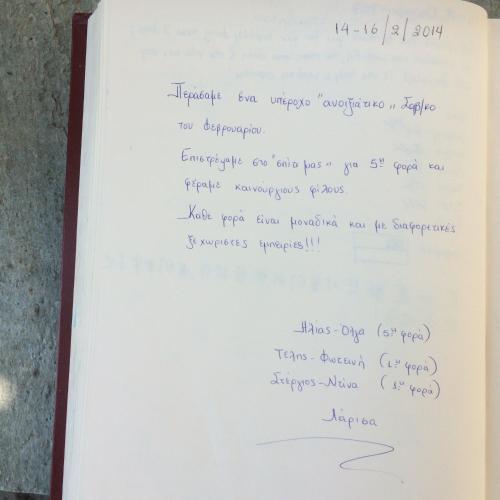 14-16/2/2014
Περάσαμε ενα υπέροχο "ανοιξιάτικο" Σαβ/κο
του Φεβρουαρίου.
Επιστρέψαμε στο "σπίτι μας" για 5η φορά και
φέραμε καινούργιους φίλους.
Κάθε φορά είναι μοναδικά και με διαφορετικές
ξεχωριστές εμπειρίες!!!
Ηλίας-Όλγα (5η φορά)
Τέλης-Φωτεινή (1η φορά)
Στέργιος-Ντίνα (1η φορά)
Λάρισα